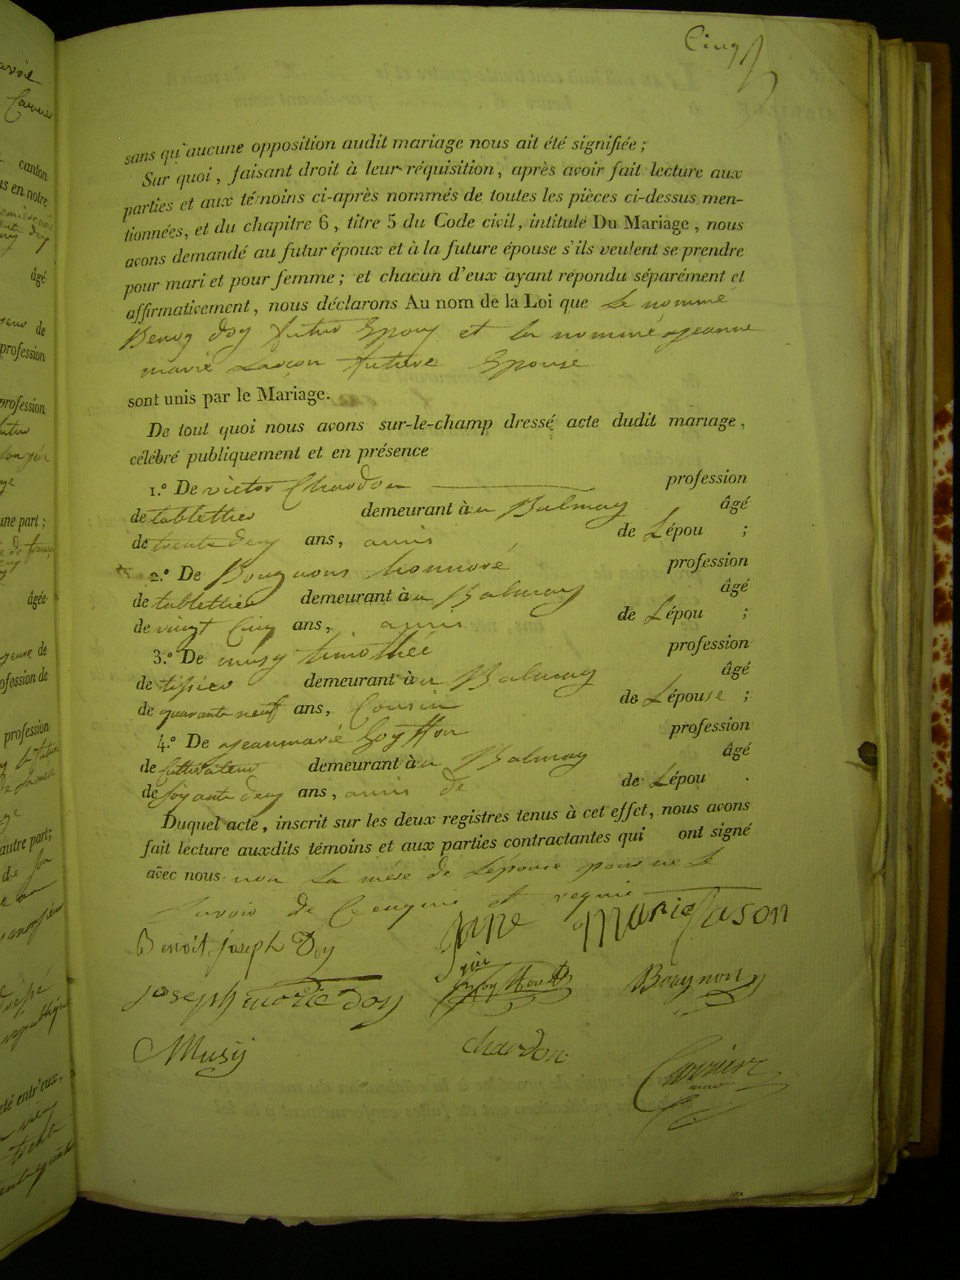 Cinq
sans qu'aucune opposition audit mariage nous ait été signifiée ;
Sur quoi, faisant droit à leur réquisition, après avoir fait lecture aux
parties et aux témoins ci-après nommés de toutes les pièces ci-dessus men-
tionnées, et du chapitre 6, titre 5 du Code civil, intitulé Du Mariage, nous
avons demandé au futur époux et à la future épouse s'ils veulent se prendre
pour mari et pour femme ; et chacun d'eux ayant répondu séparément et
affirmativement, nous déclarons Au nom de la Loi que le nommé
Benoy doy futur Epoux et la nommé jeanne
marie future Epouse
sont unis par le Mariage.
De tout quoi nous avons sur-le-champ dressé acte dudit mariage,
célébré publiquement et en présence
1.° De victor Chardon profession
de tablettier demeurant à Balmay âgé
de trente deux ans, amis de Lépou ;
2.° De honnoré profession
de tablettier demeurant à Balmay âgé
de vingt Cinq ans, amis de Lépou ;
3.° De musy timothée profession
de tissier demeurant à Balmay âgé
de quarante neuf ans, Cousin de Lépouse ;
4.° De jeanmarie goyffon profession
de Cultivateur demeurant à Balmay âgé
de soixante deux ans, amis de de Lépou .
Duquel acte, inscrit sur les deux registres tenus à cet effet, nous avons
fait lecture auxdits témoins et aux parties contractantes qui ont signé
avec nous non La mère de Lépouse pour ne le
savoir de Ce enquis et requis
Benoit joseph Doy
Marie
joseph marie doy
Bougnon
Musy
chardon
Carrier